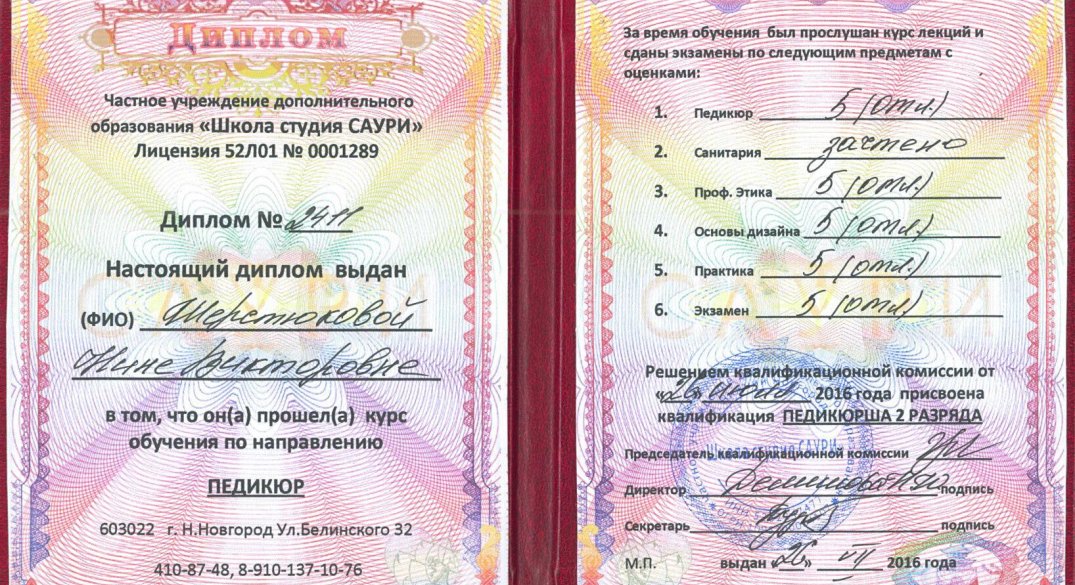 Диплом
Частное учреждение дополнительного
образования «Школа студия САУРИ»
Лицензия 52Л01 № 0001289
Диплом № 2411
Настоящий диплом выдан
(ФИО) Шерстюковой
Нине Викторовне
в том, что он(а) прошел(а) курс
обучения по направлению
ПЕДИКЮР
603022 г. Н.Новгород Ул.Белинского 32
410-87-48, 8-910-137-10-76
За время обучения был прослушан курс лекций и
сданы экзамены по следующим предметам с
оценками:
1. Педикюр 5 (отл.)
2. Санитария зачтено
3. Проф. Этика 5 (отл.)
4. Основы дизайна 5 (отл.)
5. Практика 5 (отл.)
6. Экзамен 5 (отл.)
Решением квалификационной комиссии от
«26» июля 2016 года присвоена
квалификация ПЕДИКЮРША 2 РАЗРЯДА
Школа студия САУРИ
Председатель квалификационной комиссии
Директор подпись
Секретарь подпись
М.П. выдан «26» VII 2016 года